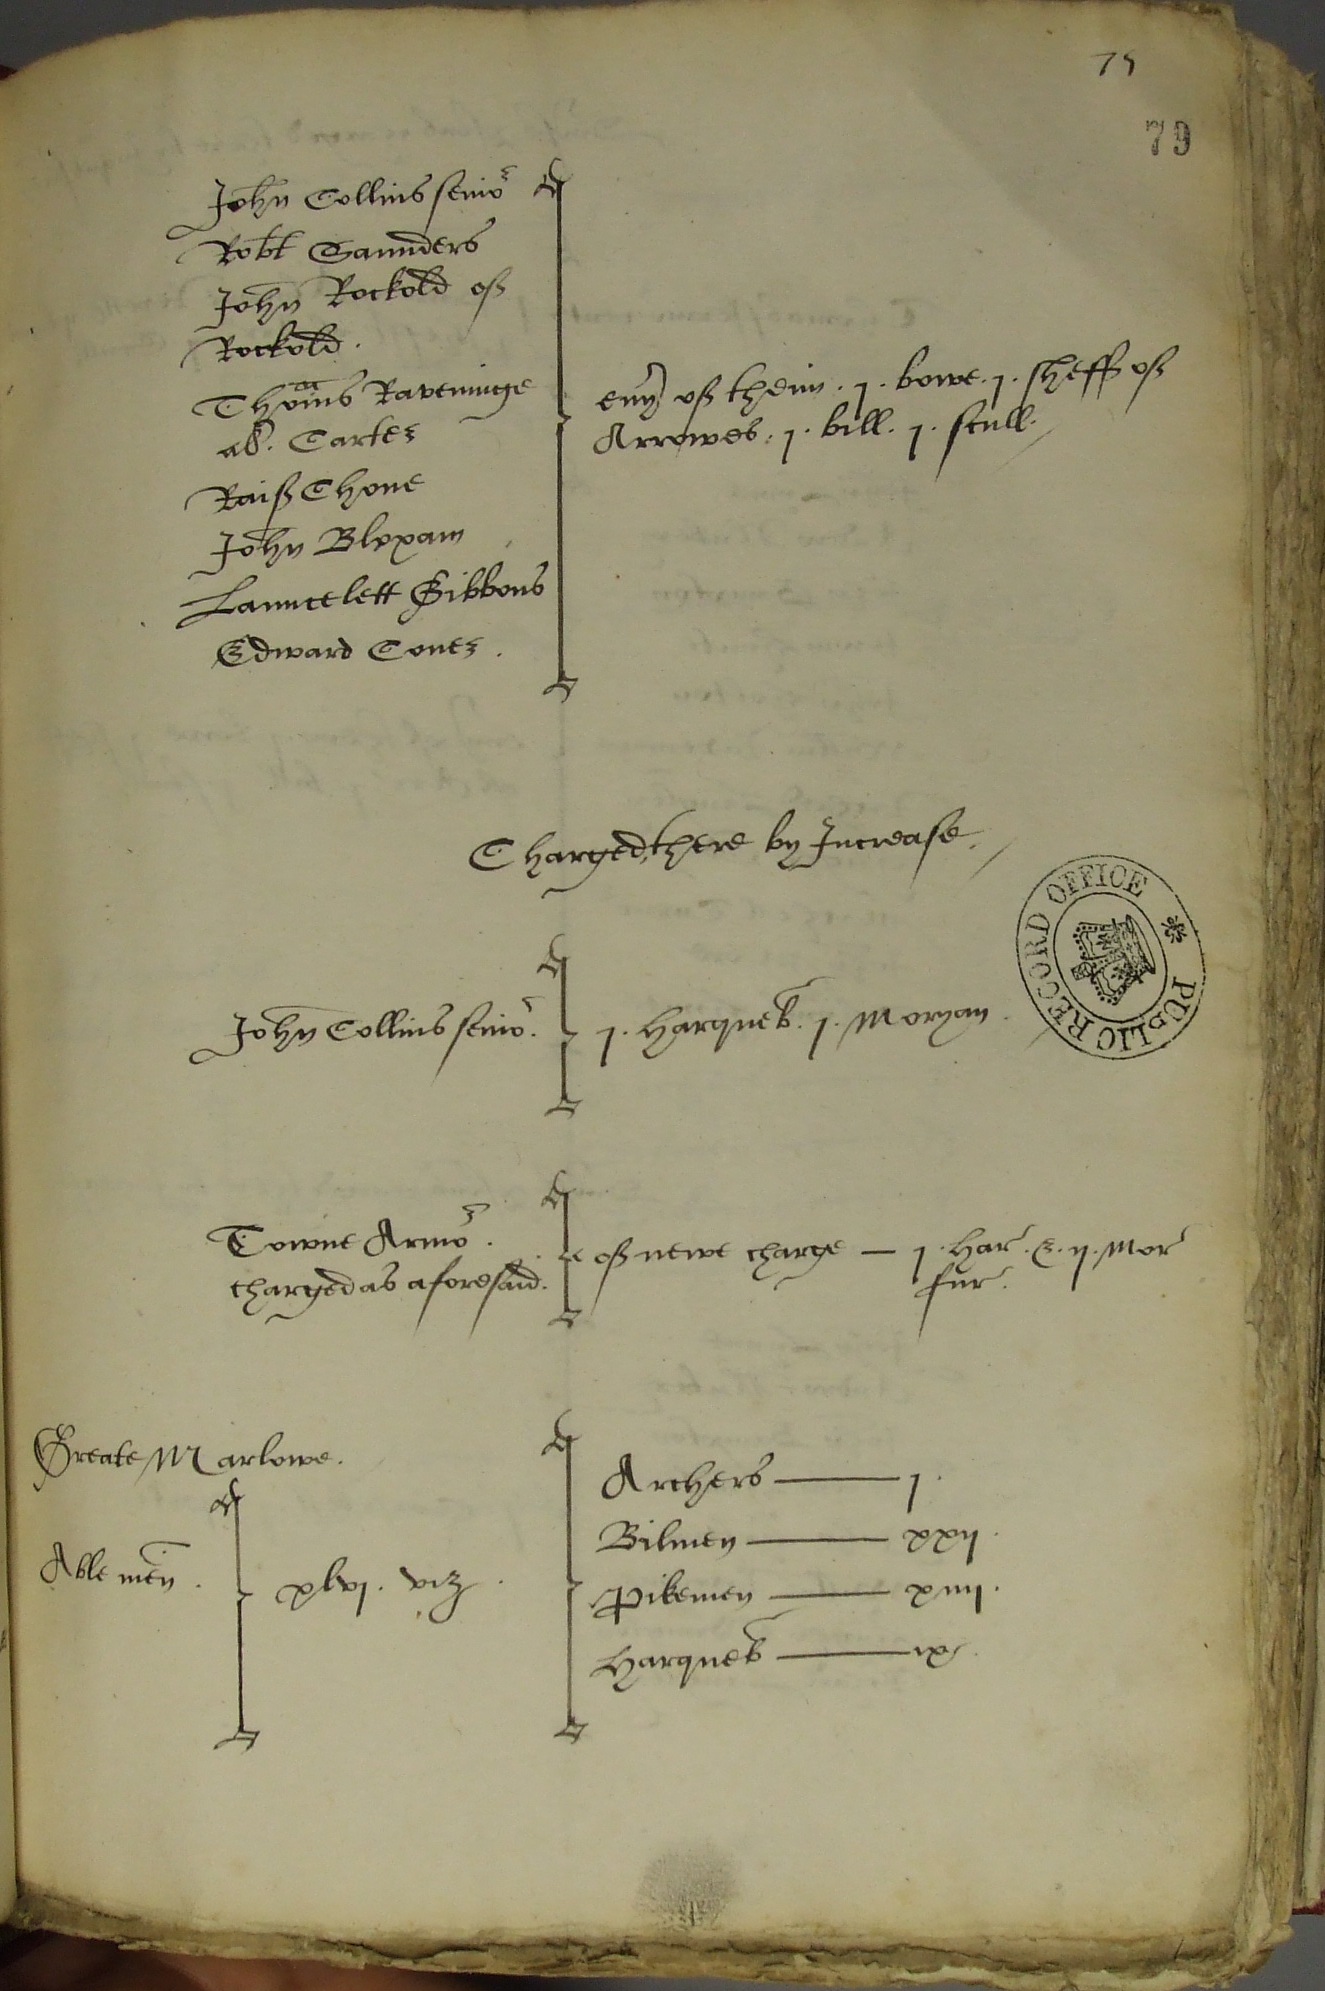 75
79
John Collins senio^r
Robt Saunders
John Rockold of
Rockold.
Thom^as Raveninge
al̃s. Carter
Raif Chone
John Bloxam
Launcelett Gibbons
Edward Coner.
eu'y of theim . j . bowe . j . sheff of
Arrowes . j . bill . j . scull.
Charged there by Increase.
John Collins senio^r.
j . Harqueb. j . Moryan.
Towne Armo^r.
charged as aforesaid.
of newe charge — j . Har. & . ij . Mor
fur.
PUBLIC RECORD OFFICE
Greate Marlowe.
Able men .
xlvj . viz .
Archers —— j .
Bilmen —— xxij .
Pikemen —— xiiij .
Harqueb —— ix .